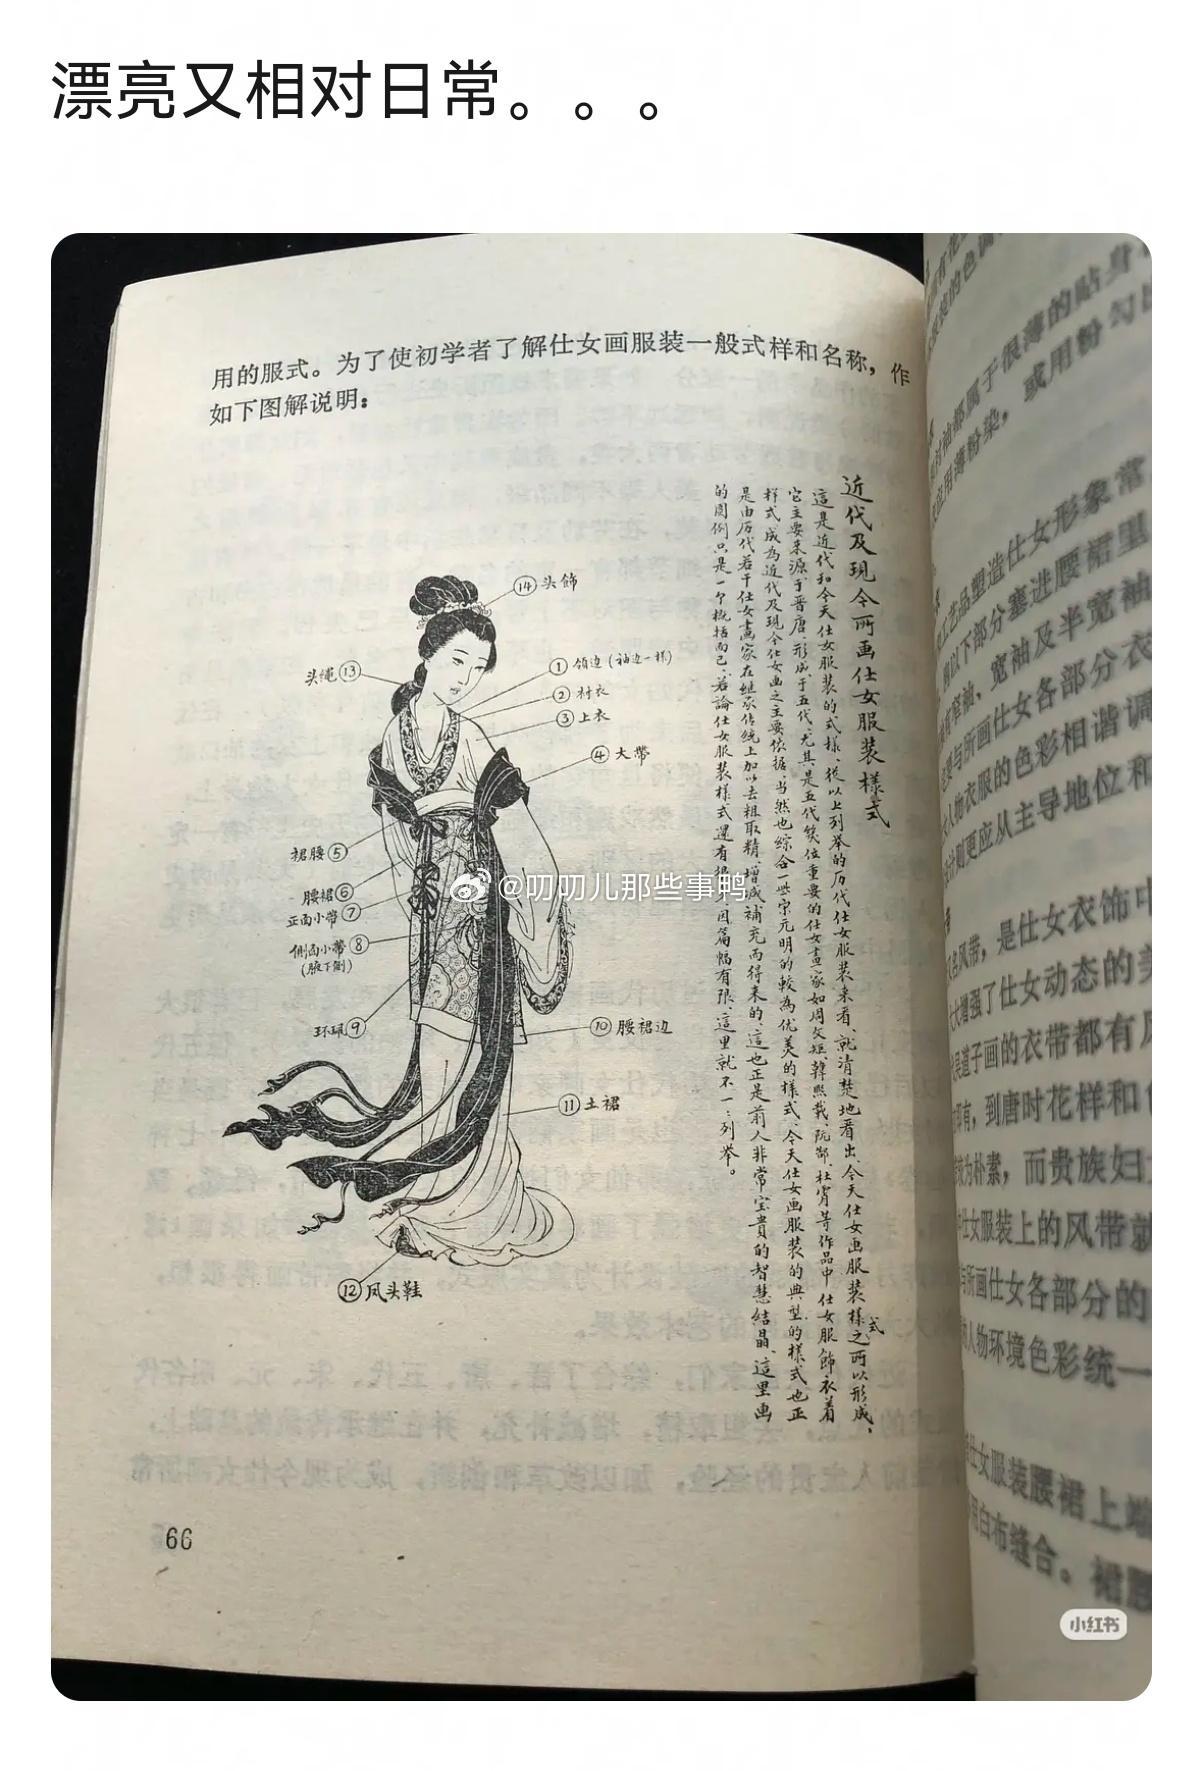 漂亮又相对日常。。。
用的服式。为了使初学者了解仕女画服装一般式样和名称，作
如下图解说明：
近代及现今所画仕女服装様式
這是近代和今天仕女服装的式樣、從以上列举的历代仕女服装来看、就清楚地看出、今天仕女画服装樣式之所以形成、
它主要来源于晋唐、形成于五代、尤其是五代筑位重要的仕女畫家如周文矩、韓熙载、阮郜、杜霄等作品中仕女服飾衣着
样式、成為近代及現今仕女画之主要依据、当然也綜合一些宗元明的較為优美的樣式、今天仕女画服装的典型的樣式也正
是由历代若干仕女畫家在継承传統上加以去粗取精、增减補充而得来的、這也正是前人非常宝貴的智慧结晶、這里画
的圖例只是一个概括而已、若論仕女服装樣式還有很 因篇幅有限、這里就不一一列举。
⑭头飾
头绳⑬
①領边（袖边一样）
②衬衣
③上衣
④大帶
裙腰⑤
腰裙⑥
正面小帶⑦
側面小帶⑧
（腋下側）
环珮⑨
⑩腰裙边
⑪土裙
⑫凤头鞋
@叨叨儿那些事鸭
66
属于很薄的贴身
或用粉勾
工艺品塑造仕女形象常
以下部分塞进腰裙里
窄袖、宽袖及半宽袖
要与所画仕女各部分衣
人物衣服的色彩相谐调
计则更应从主导地位和
名风带，是仕女衣饰中
大增强了仕女动态的美
吴道子画的衣带都有风
有，到唐时花样和
较为朴素，而贵族妇
仕女服装上的风带就
与所画仕女各部分的
人物环境色彩统一
仕女服装腰裙上端
用白布缝合。裙腰
小红书